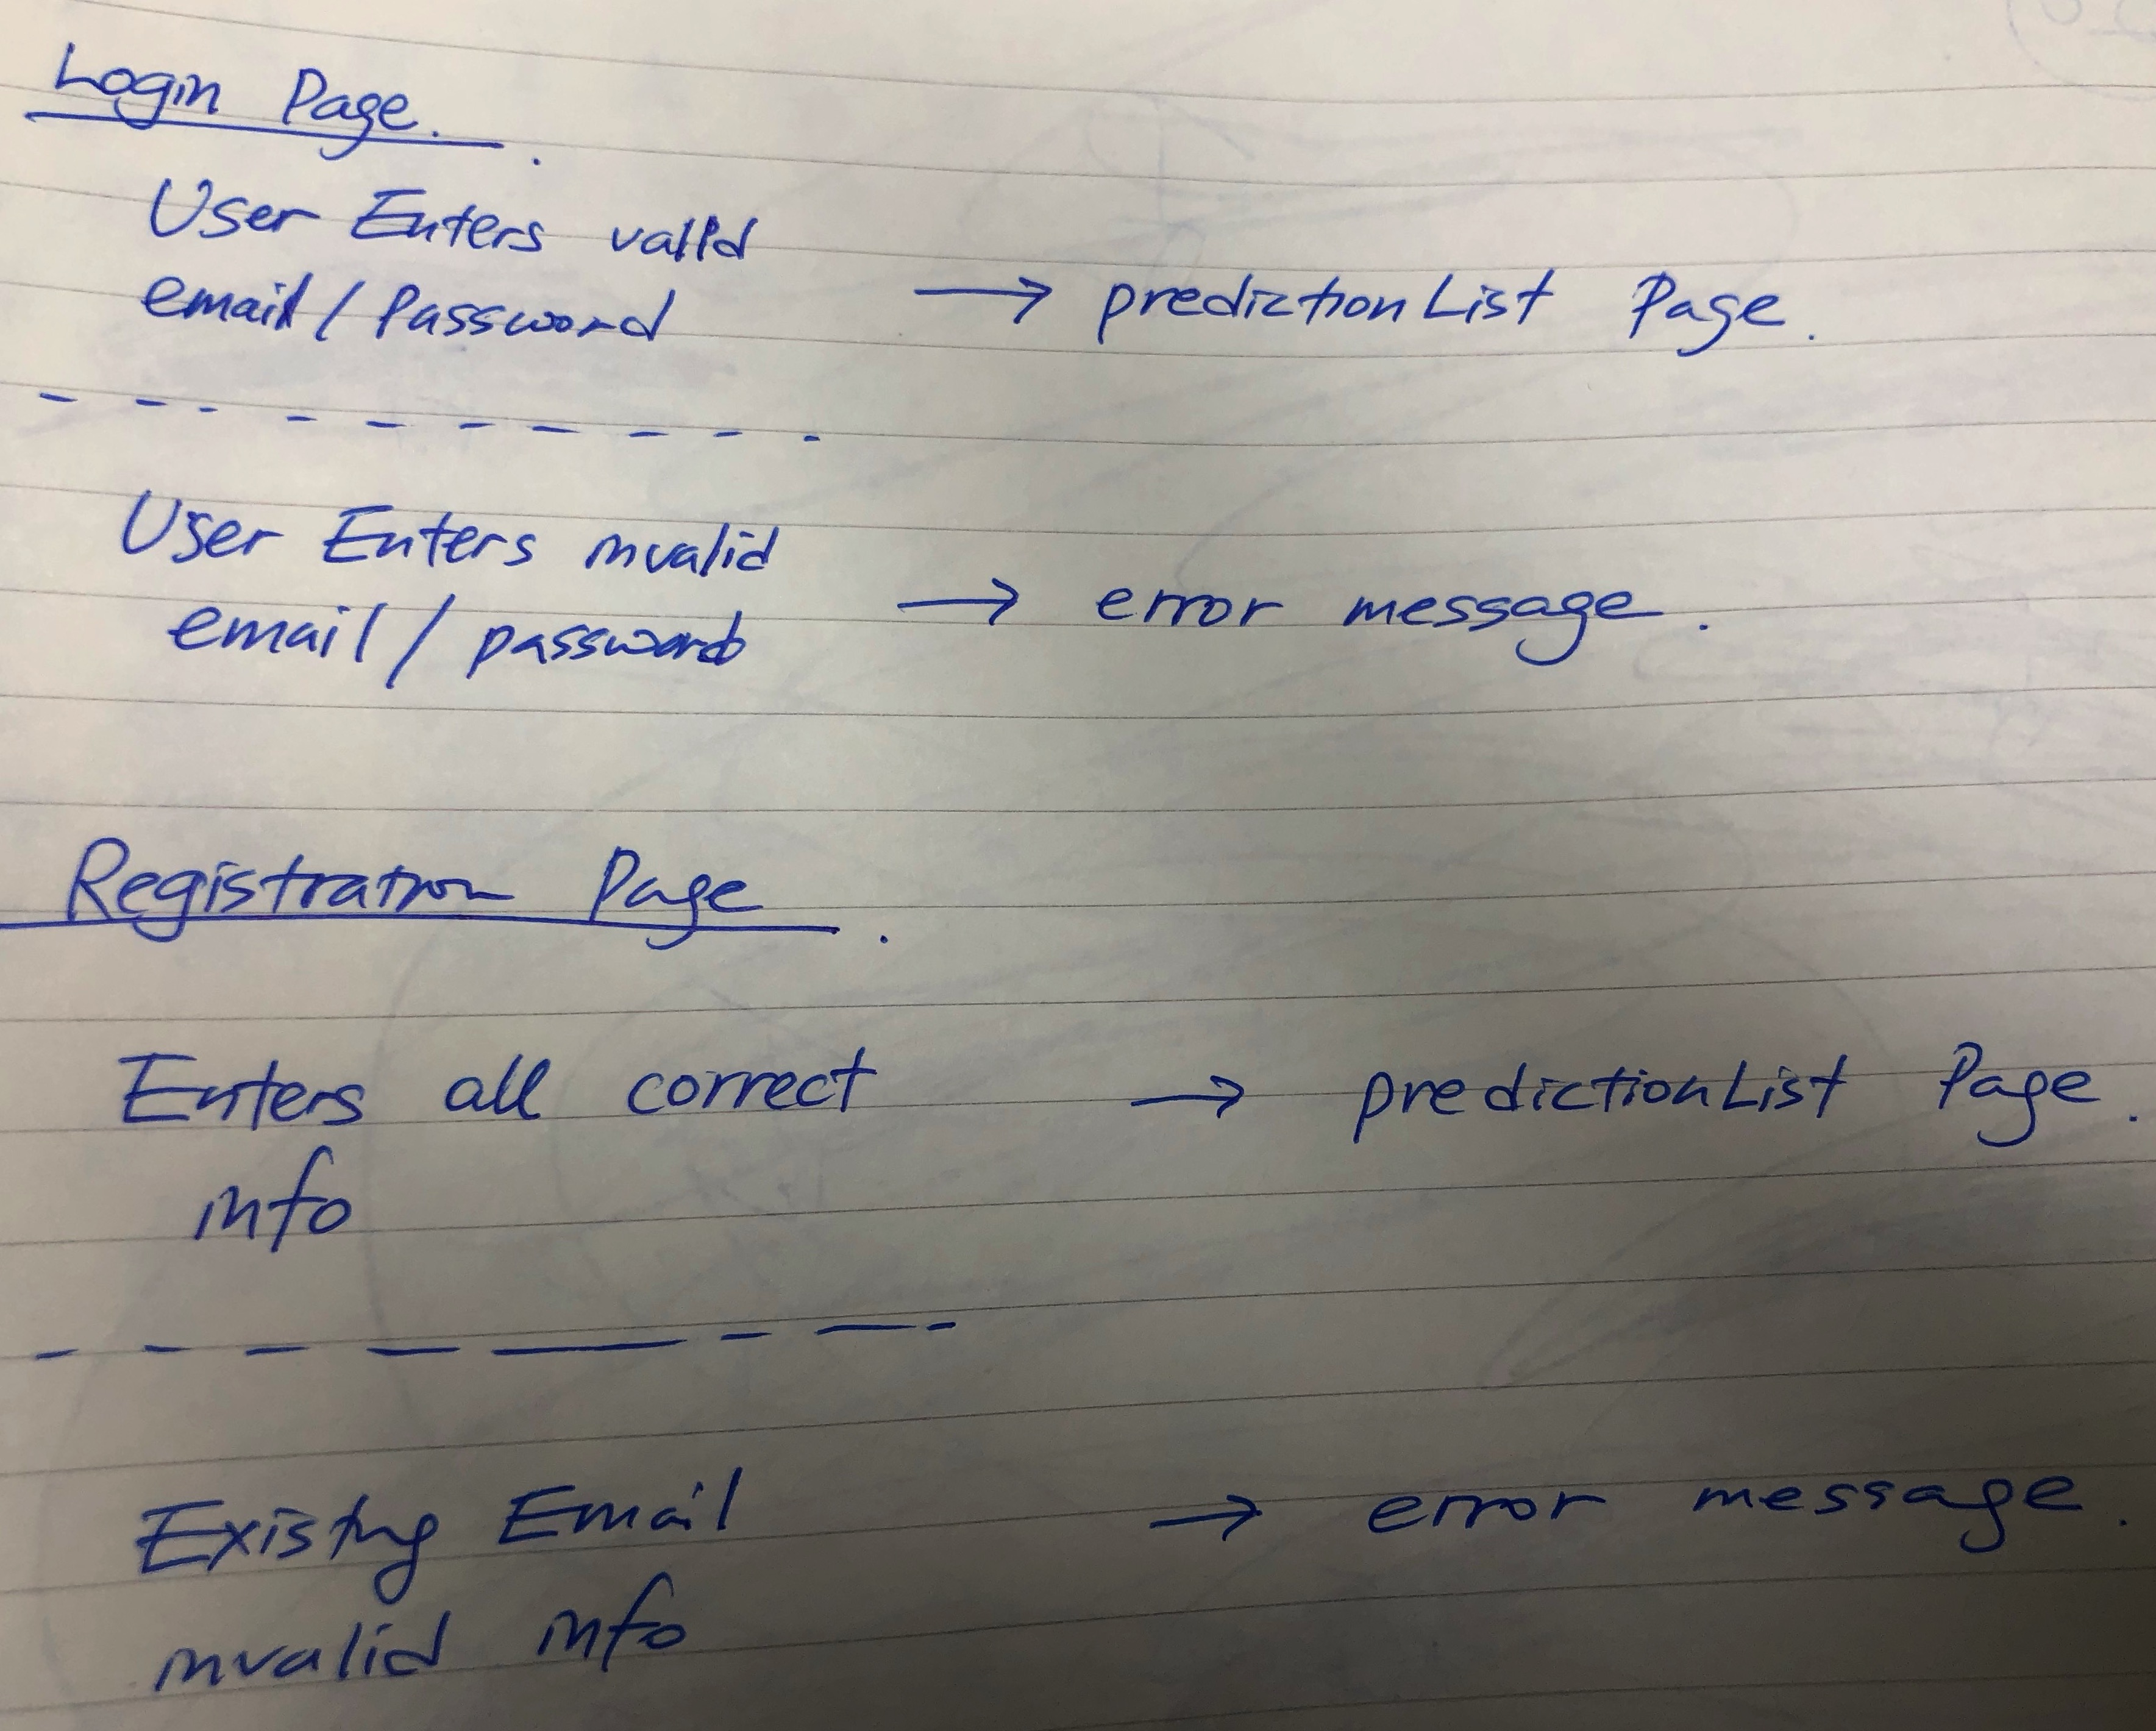 Login Page.
User Enters valid
email / Password → predictionList Page.
User Enters invalid
email / password → error message.
Registration Page.
Enters all correct → predictionList Page.
info
Existing Email → error message.
invalid info